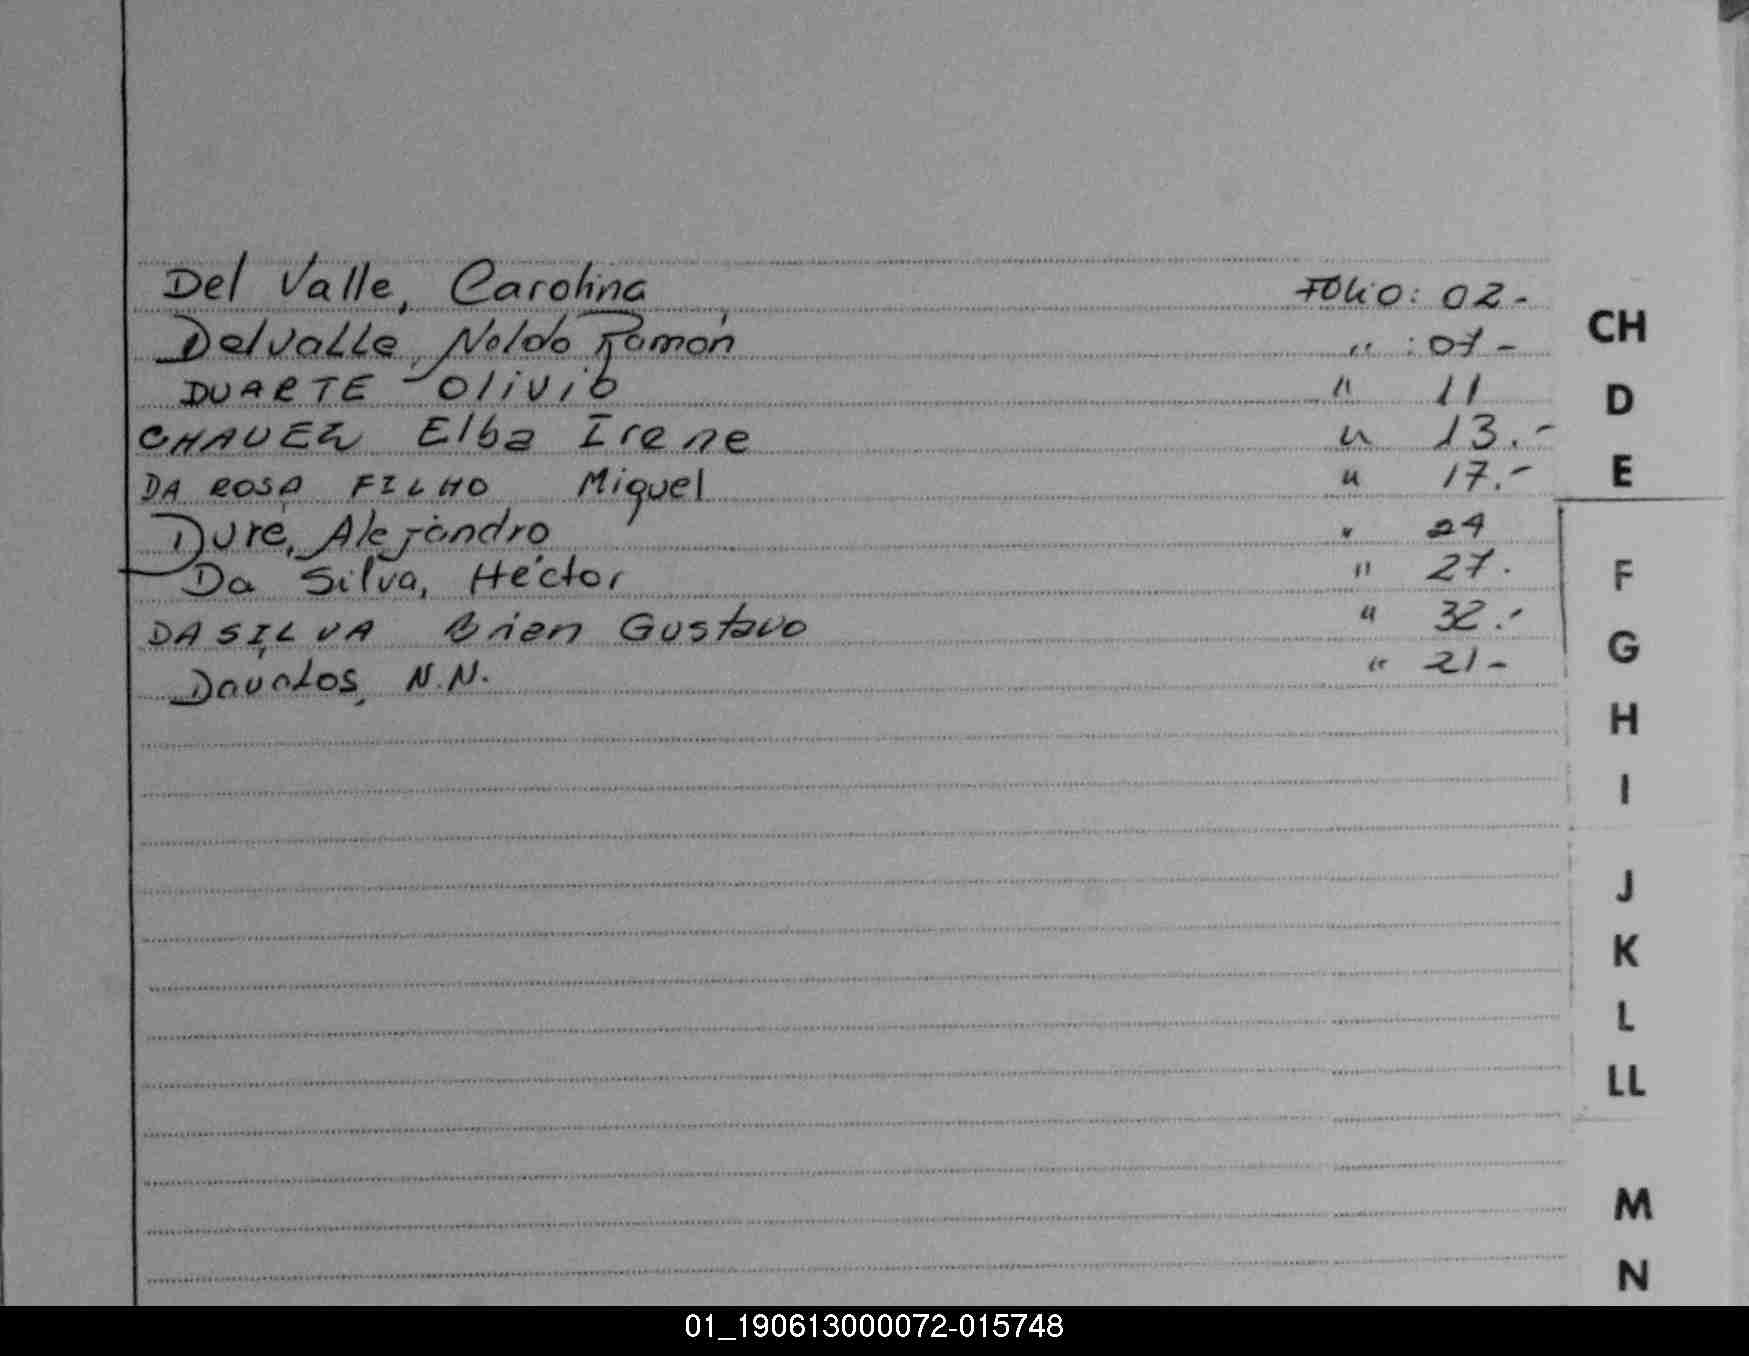 Del Valle, Carolina Folio: 02-
Delvalle, Noldo Ramón " : 07-
DUARTE Olivio " 11
CHAVEZ Elba Irene " 13.-
DA ROSA FILHO Miguel " 17.-
Duré, Alejandro " 24
Da Silva, Héctor " 27.
DA SILVA Brien Gustavo " 32.-
Davalos, N.N. " 21-
CH
D
E
F
G
H
I
J
K
L
LL
M
N
01_190613000072-015748